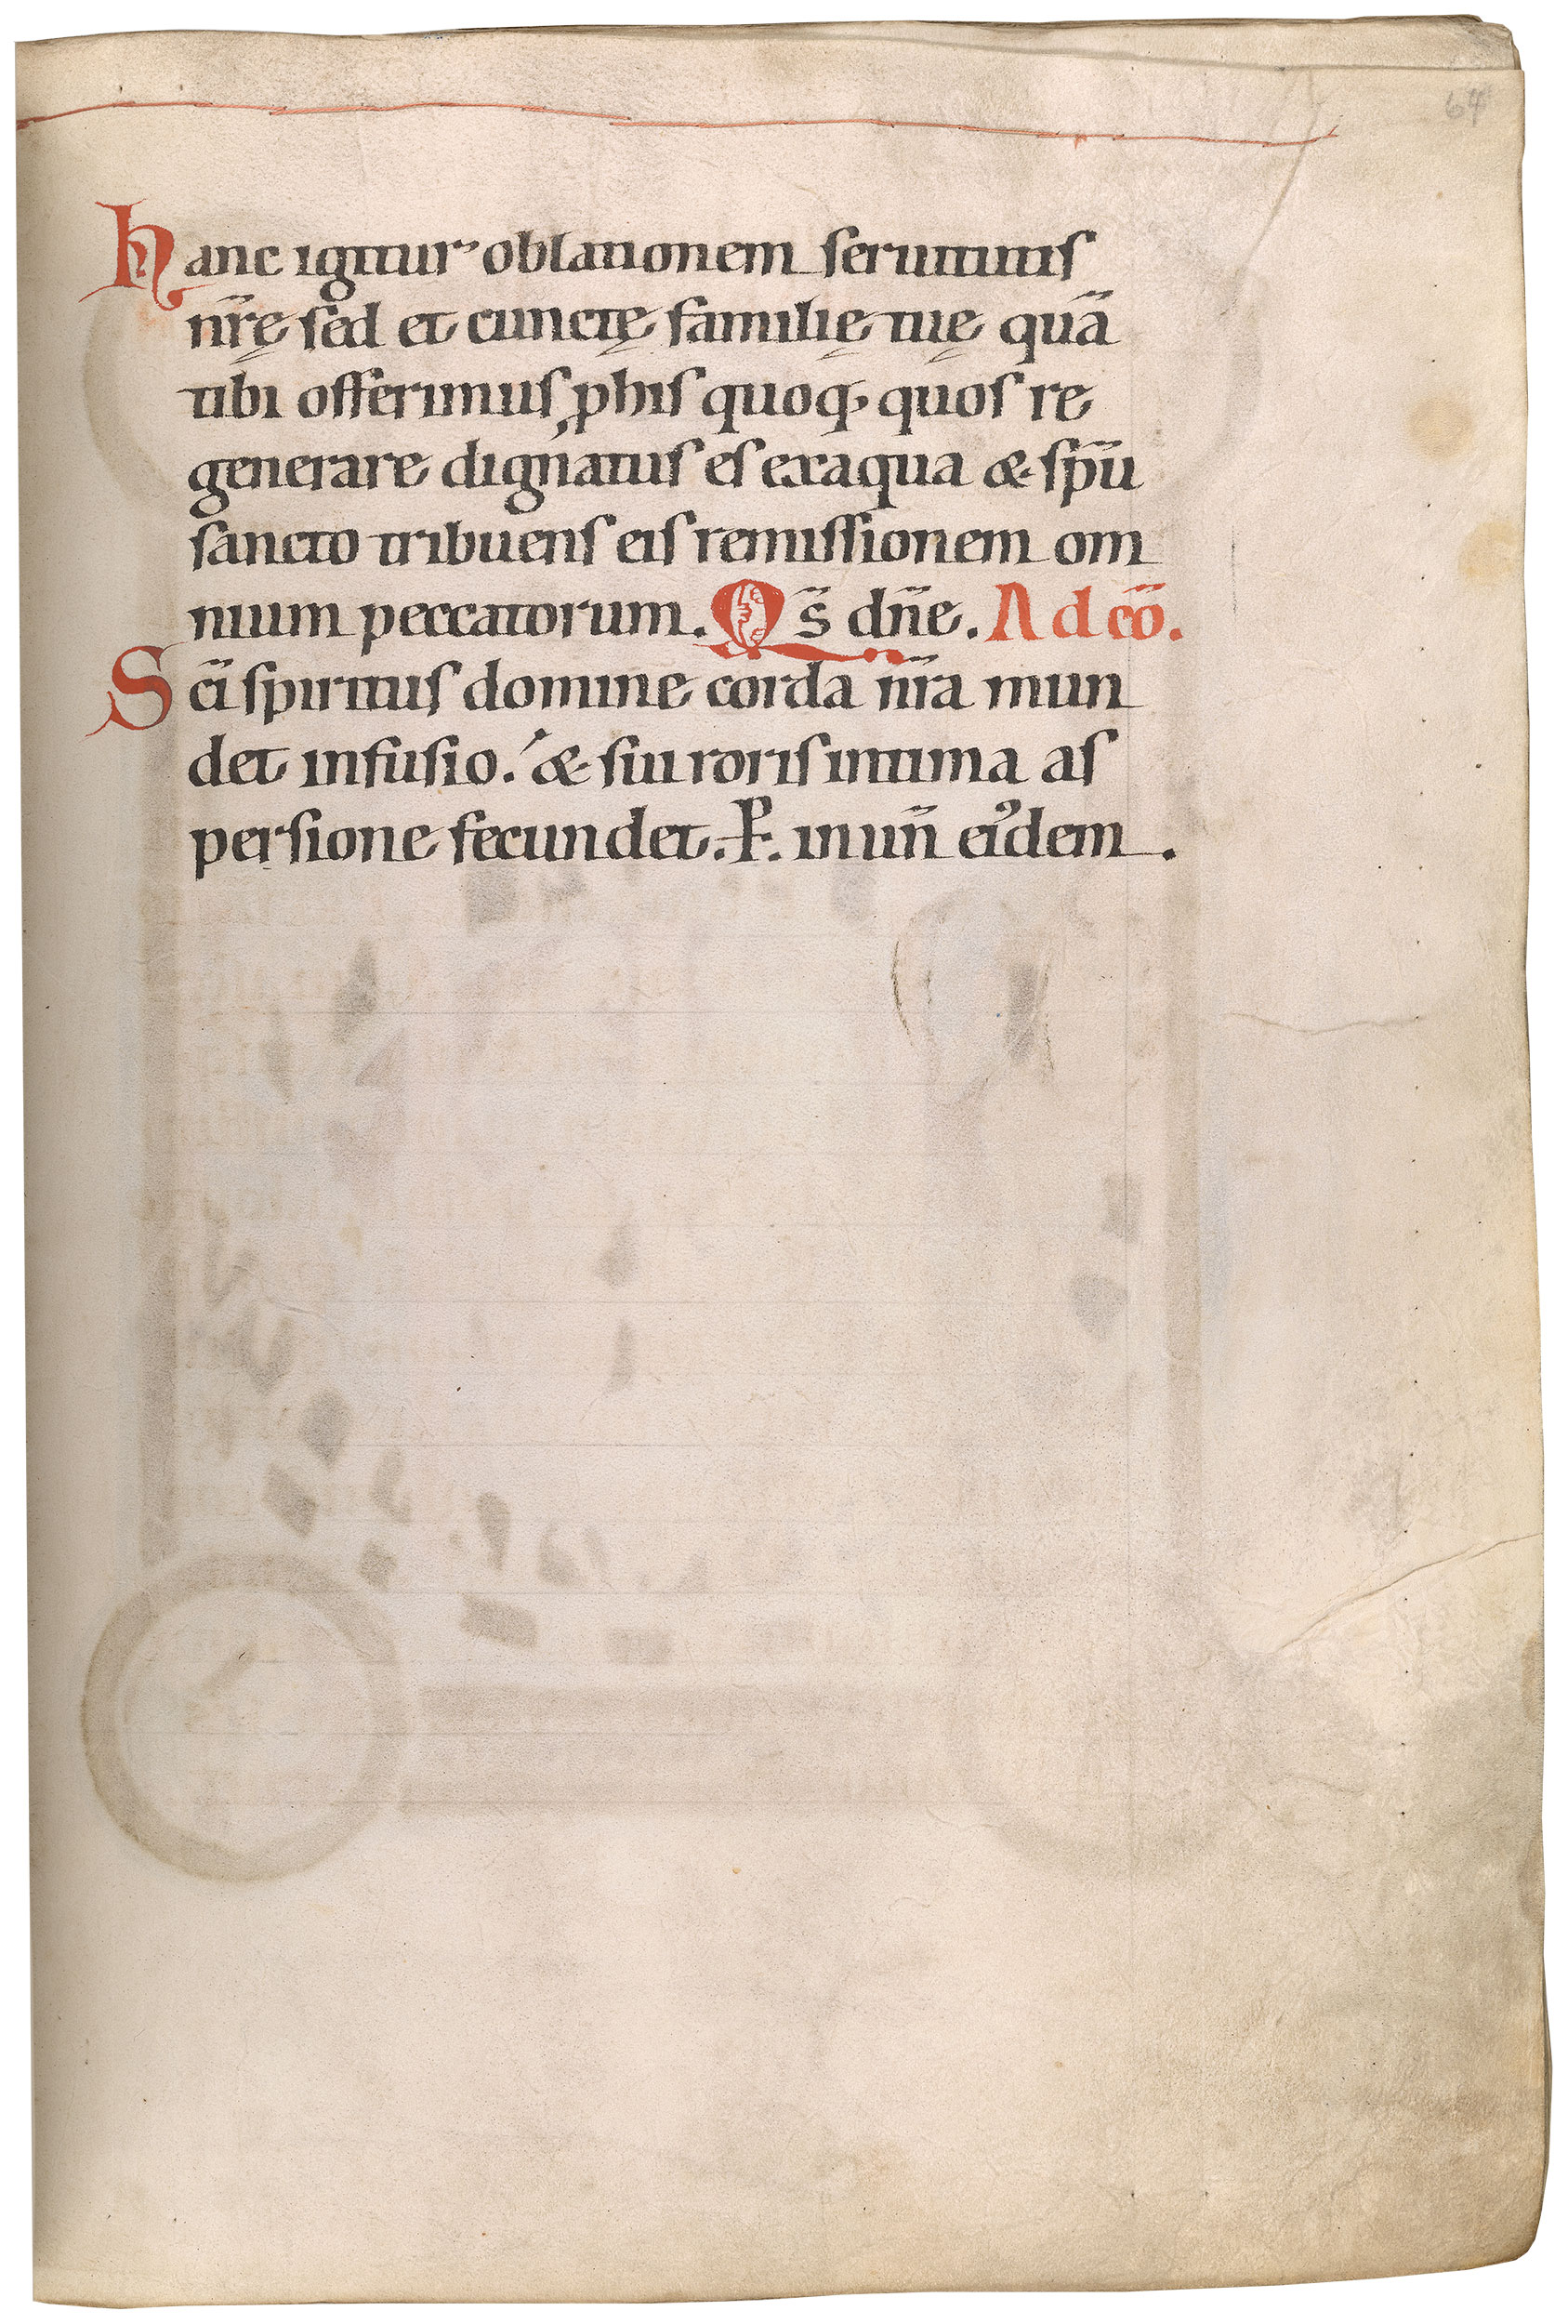 64
hanc igitur oblationem seruitutis
nr̄ę sed et cunctę familię tuę quā
tibi offerimus ꝓ his quoq; quos re
generare dignatus es ex aqua & spū
sancto tribuens eis remissionem om
nium peccatorum. Qs̄ dn̄e. Ad cō.
Sc̄i spiritus domine corda nr̄a mun
det infusio. & sui roris intima as
persione fecundet. P. in un̄ eiꝰdem.